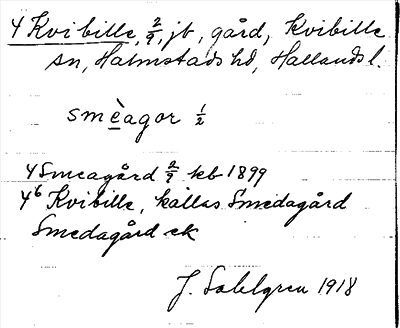 4 Kvibille, 2/9, jb, gård, Kvibille
sn, Halmstads hd, Hallands l.
smèagor 1/2
4 Smeagård 2/9 kb 1899
4⁶ Kvibille, kallas Smedagård
Smedagård ek
J. Sahlgren 1918